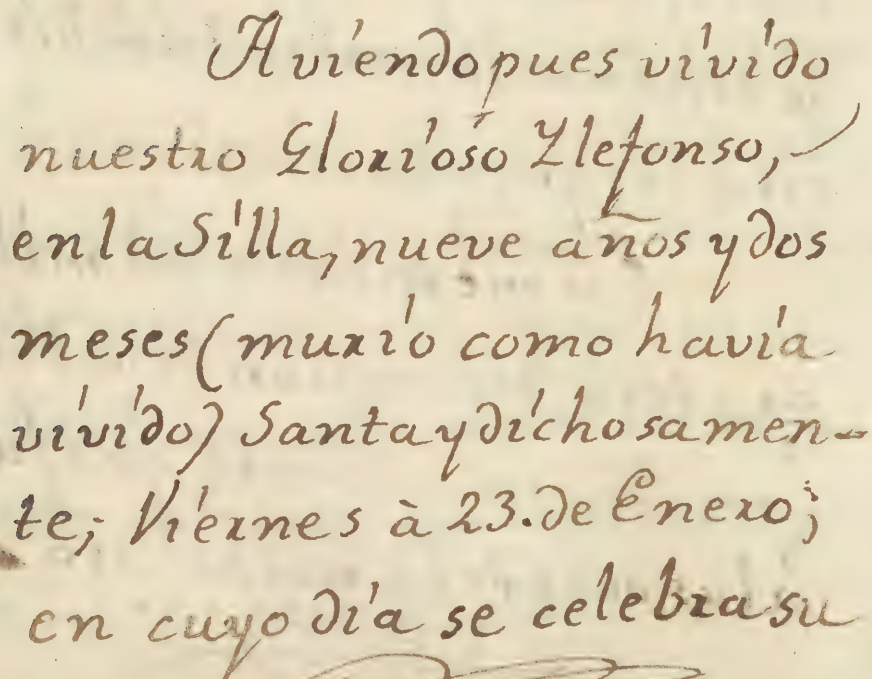 Aviendo pues vivido
nuestro Glorioso Ylefonso,
en la Silla, nueve años y dos
meses (murio como havia
vivido) Santa y dichosamen-
te; Viernes à 23. de Enero;
en cuyo dia se celebra su